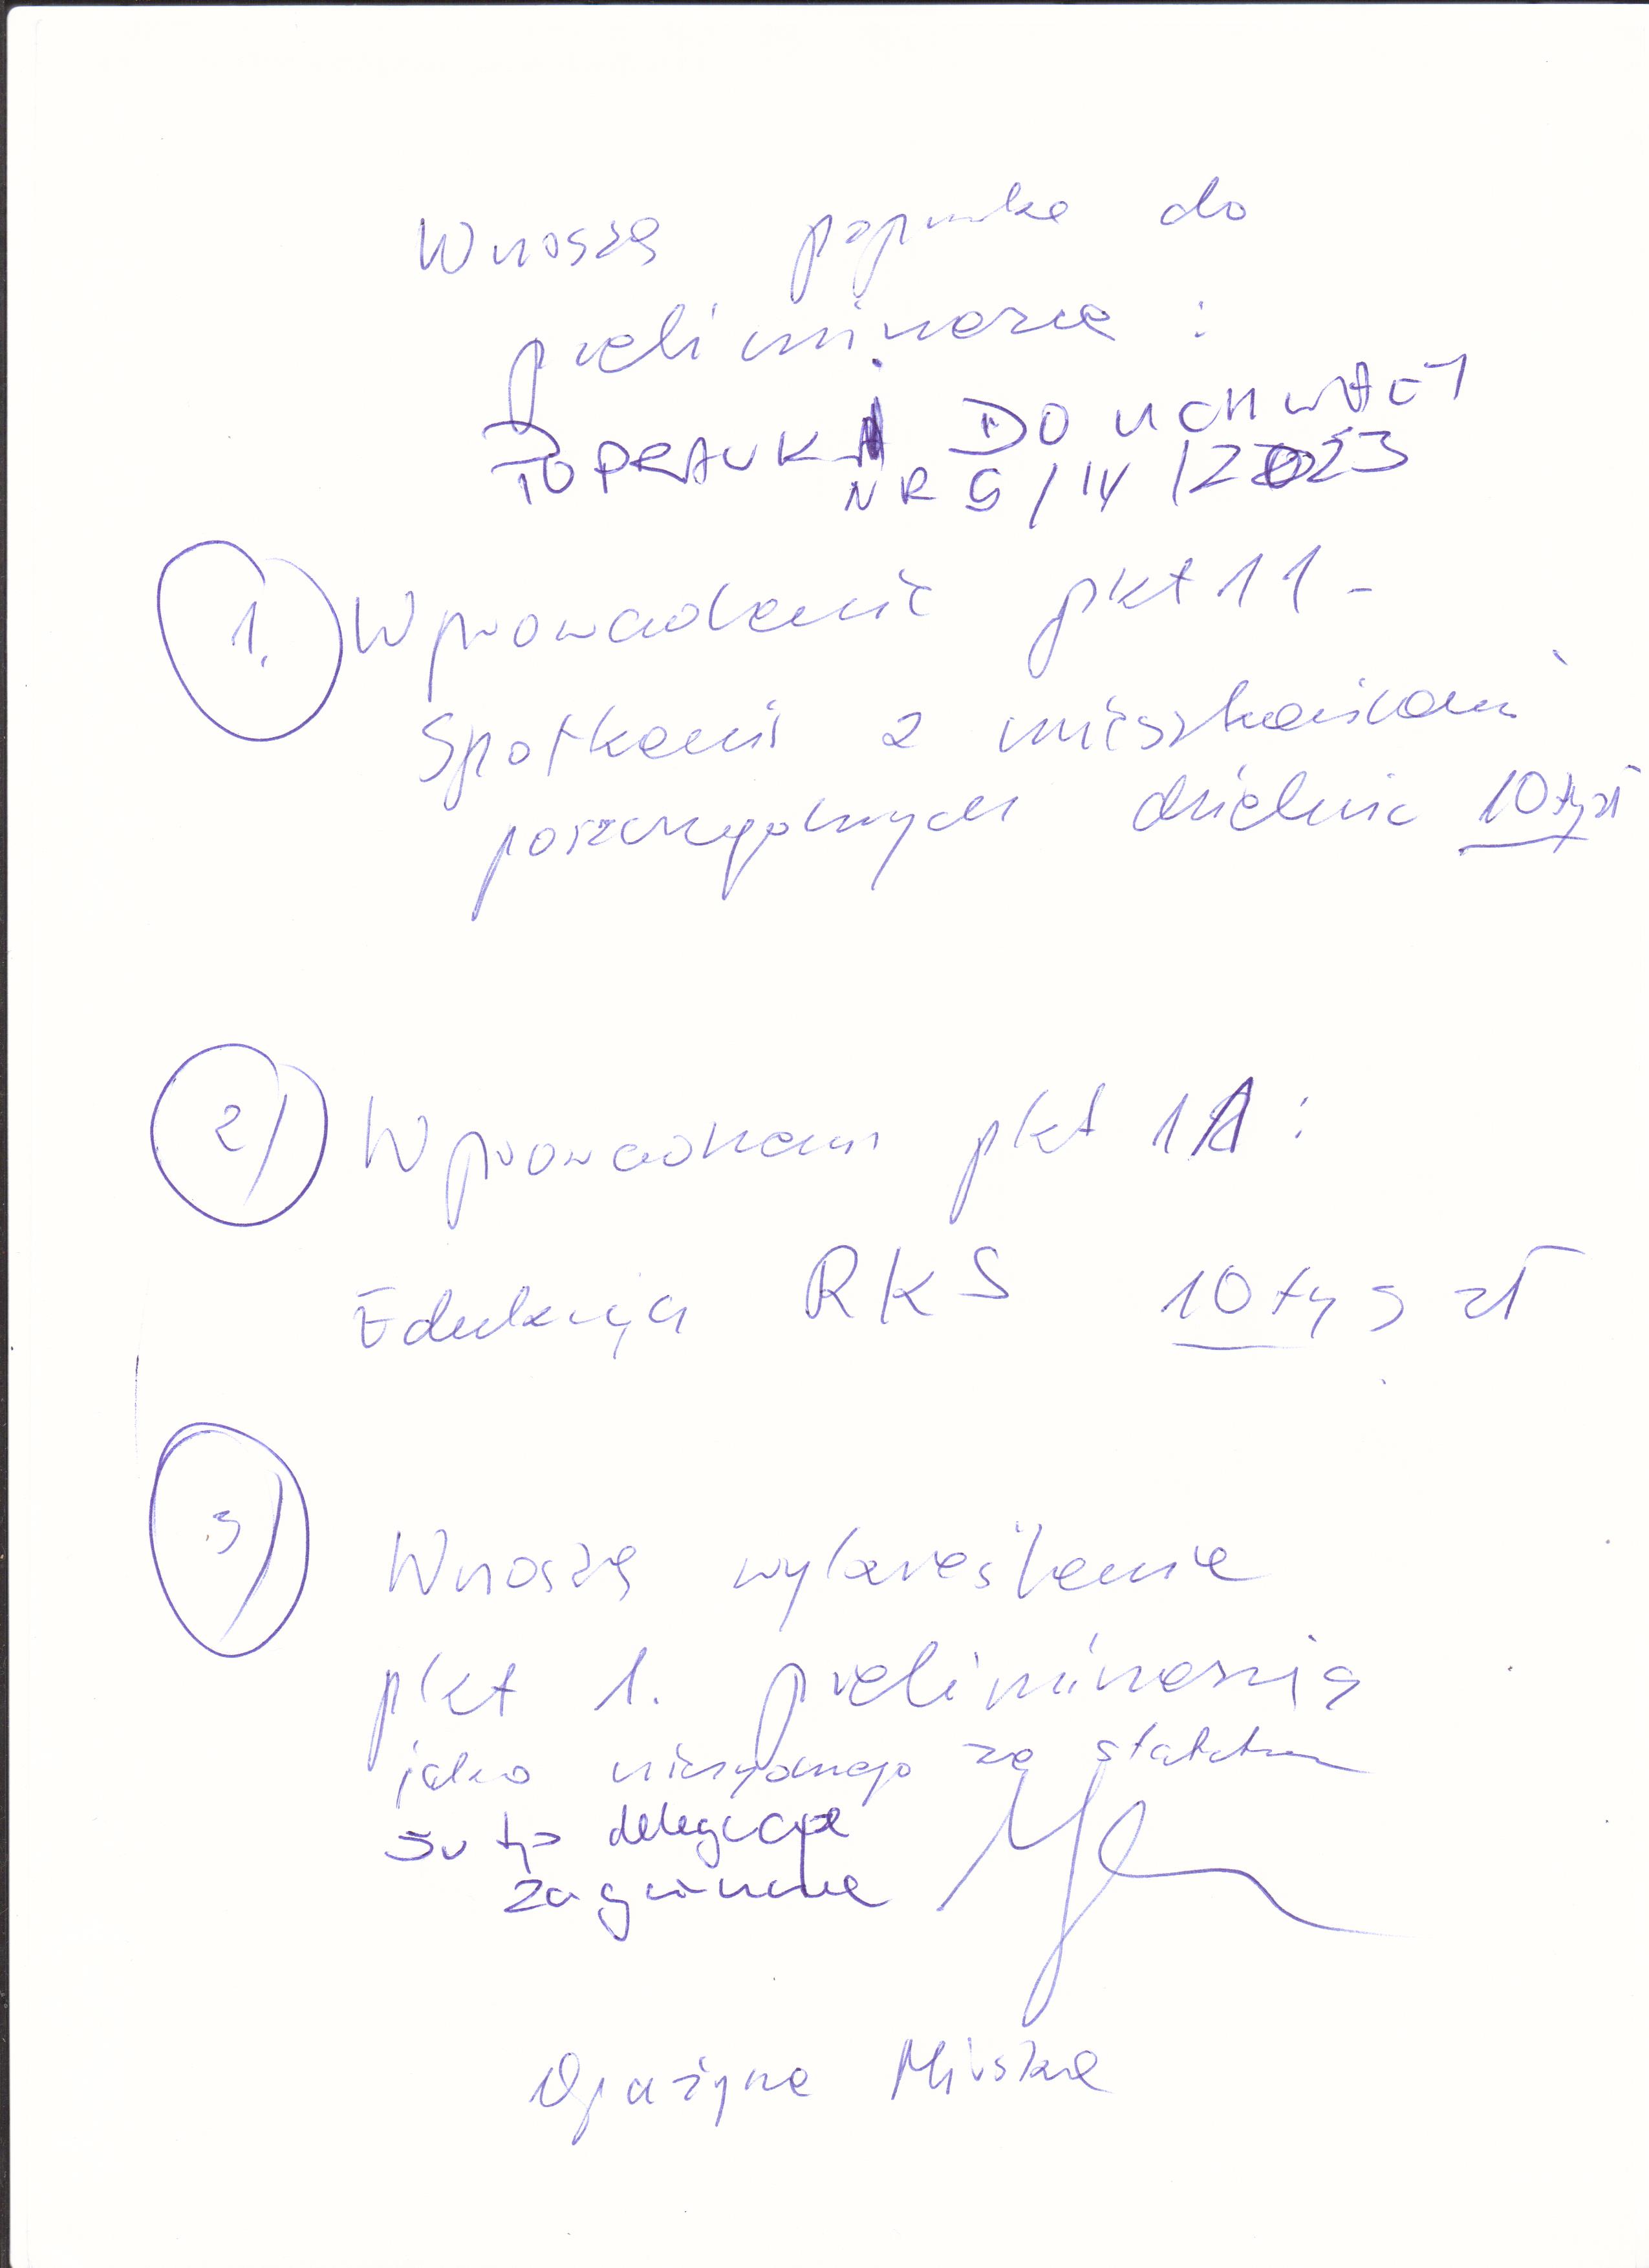 Wnoszę poprawkę do
preliminarza :
POPRAWKA DO UCHWAŁY
NR 5/IV/2023
1. Wprowadzenie pkt 11 -
Spotkania z mieszkańcami
poszczególnych dzielnic 10 tyś zł
2) Wprowadzenie pkt 11 :
Edukacja RKS 10 tyś zł
3) Wnoszę wykreślenie
pkt 1. preliminarza
jako niezgodnego ze statutem
delegacje
zagraniczne
Grażyna